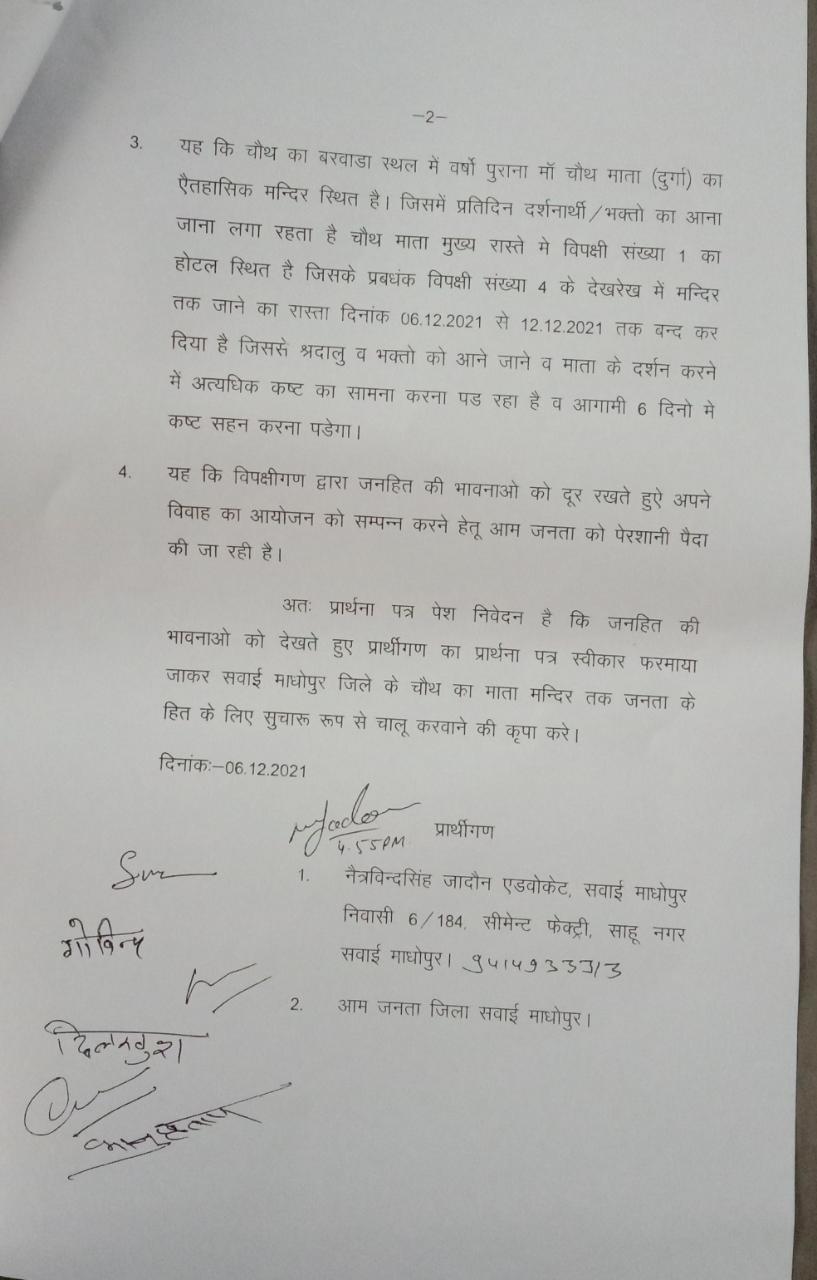 –2–
3. यह कि चौथ का बरवाडा स्थल में वर्षो पुराना मॉ चौथ माता (दुर्गा) का
ऐतहासिक मन्दिर स्थित है। जिसमें प्रतिदिन दर्शनार्थी/भक्तो का आना
जाना लगा रहता है चौथ माता मुख्य रास्ते मे विपक्षी संख्या 1 का
होटल स्थित है जिसके प्रबधंक विपक्षी संख्या 4 के देखरेख में मन्दिर
तक जाने का रास्ता दिनांक 06.12.2021 से 12.12.2021 तक बन्द कर
दिया है जिससे श्रदालु व भक्तो को आने जाने व माता के दर्शन करने
में अत्यधिक कष्ट का सामना करना पड रहा है व आगामी 6 दिनो मे
कष्ट सहन करना पडेगा।
4. यह कि विपक्षीगण द्वारा जनहित की भावनाओ को दूर रखते हुऐ अपने
विवाह का आयोजन को सम्पन्न करने हेतू आम जनता को पेरशानी पैदा
की जा रही है।
अतः प्रार्थना पत्र पेश निवेदन है कि जनहित की
भावनाओ को देखते हुए प्रार्थीगण का प्रार्थना पत्र स्वीकार फरमाया
जाकर सवाई माधोपुर जिले के चौथ का माता मन्दिर तक जनता के
हित के लिए सुचारू रूप से चालू करवाने की कृपा करे।
दिनांकः–06.12.2021
4.55PM
प्रार्थीगण
1. नैत्रविन्दसिंह जादौन एडवोकेट, सवाई माधोपुर
निवासी 6/184, सीमेन्ट फेक्ट्री, साहू नगर
सवाई माधोपुर।
गोविन्द
2. आम जनता जिला सवाई माधोपुर।
दिलखुश